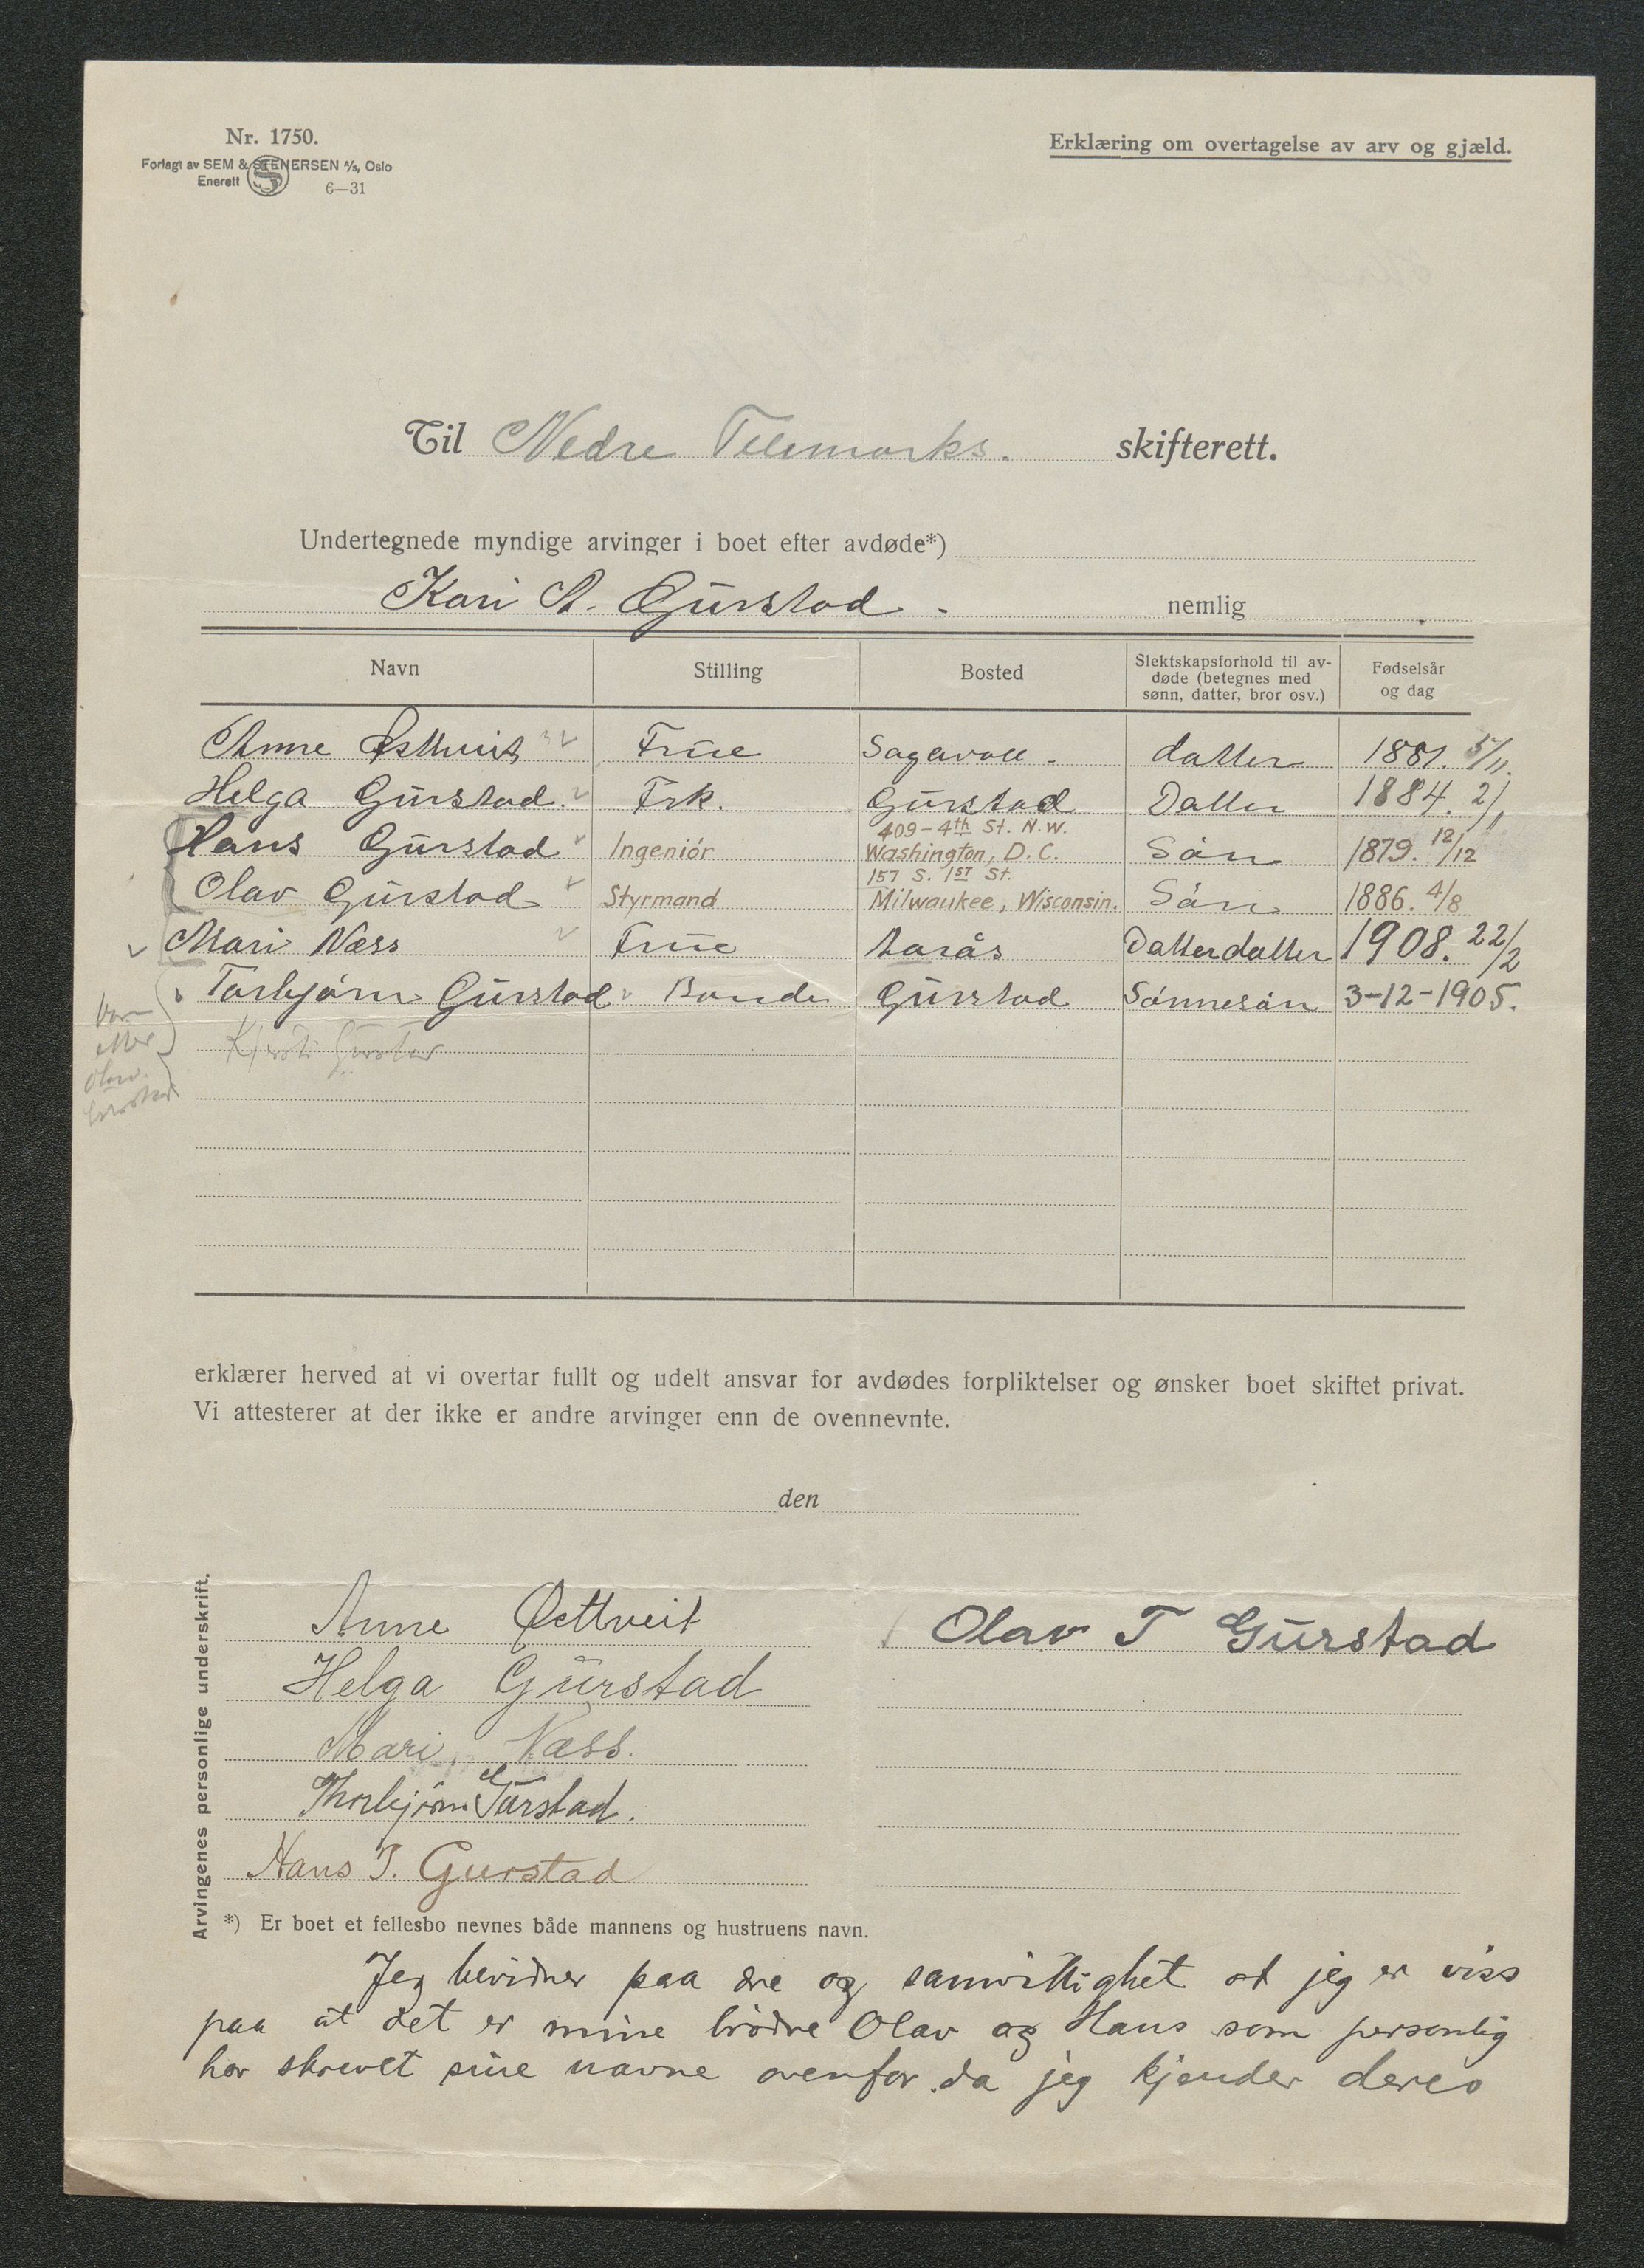 Nr. 1750.
Forlagt av SEM & STENERSEN A/S, Oslo
Enerett 6—31
Erklæring om overtagelse av arv og gjæld.
Til Nedre Telemarks. skifterett.
Undertegnede myndige arvinger i boet efter avdøde*)
Kari A. Gurstad. - nemlig
Navn Stilling Bosted Slektskapsforhold til av-døde (betegnes med sønn, datter, bror osv.) Fødselsår og dag
Anne Østtveit Frue Sagavoll - datter 1881. 5/11.
Helga Gurstad. Frk. Gurstad Datter 1884. 2/1
409-4th St. N.W.
Hans Gurstad Ingeniør Washington, D.C. Søn 1879. 12/12
157 S. 1st St.
Olav Gurstad Styrmand Milwaukee, Wisconsin. Søn 1886. 4/8
Mari Næss Frue Aarås Datterdatter 1908. 22/2
Torbjørn Gurstad Bonde Gurstad Sønnesøn 3-12-1905.
efter
Olav
Gurstad
erklærer herved at vi overtar fullt og udelt ansvar for avdødes forpliktelser og ønsker boet skiftet privat.
Vi attesterer at der ikke er andre arvinger enn de ovennevnte.
den
Arvingenes personlige underskrift.
Anne Østtveit
Helga Gurstad
Mari Næss.
Thorbjørn Gurstad.
Hans T. Gurstad
Olav T Gurstad
*) Er boet et fellesbo nevnes både mannens og hustruens navn.
Jeg bevidner paa ære og samvittighet at jeg er viss
paa at det er mine brødre Olav og Hans som personlig
har skrevet sine navne ovenfor da jeg kjender deres